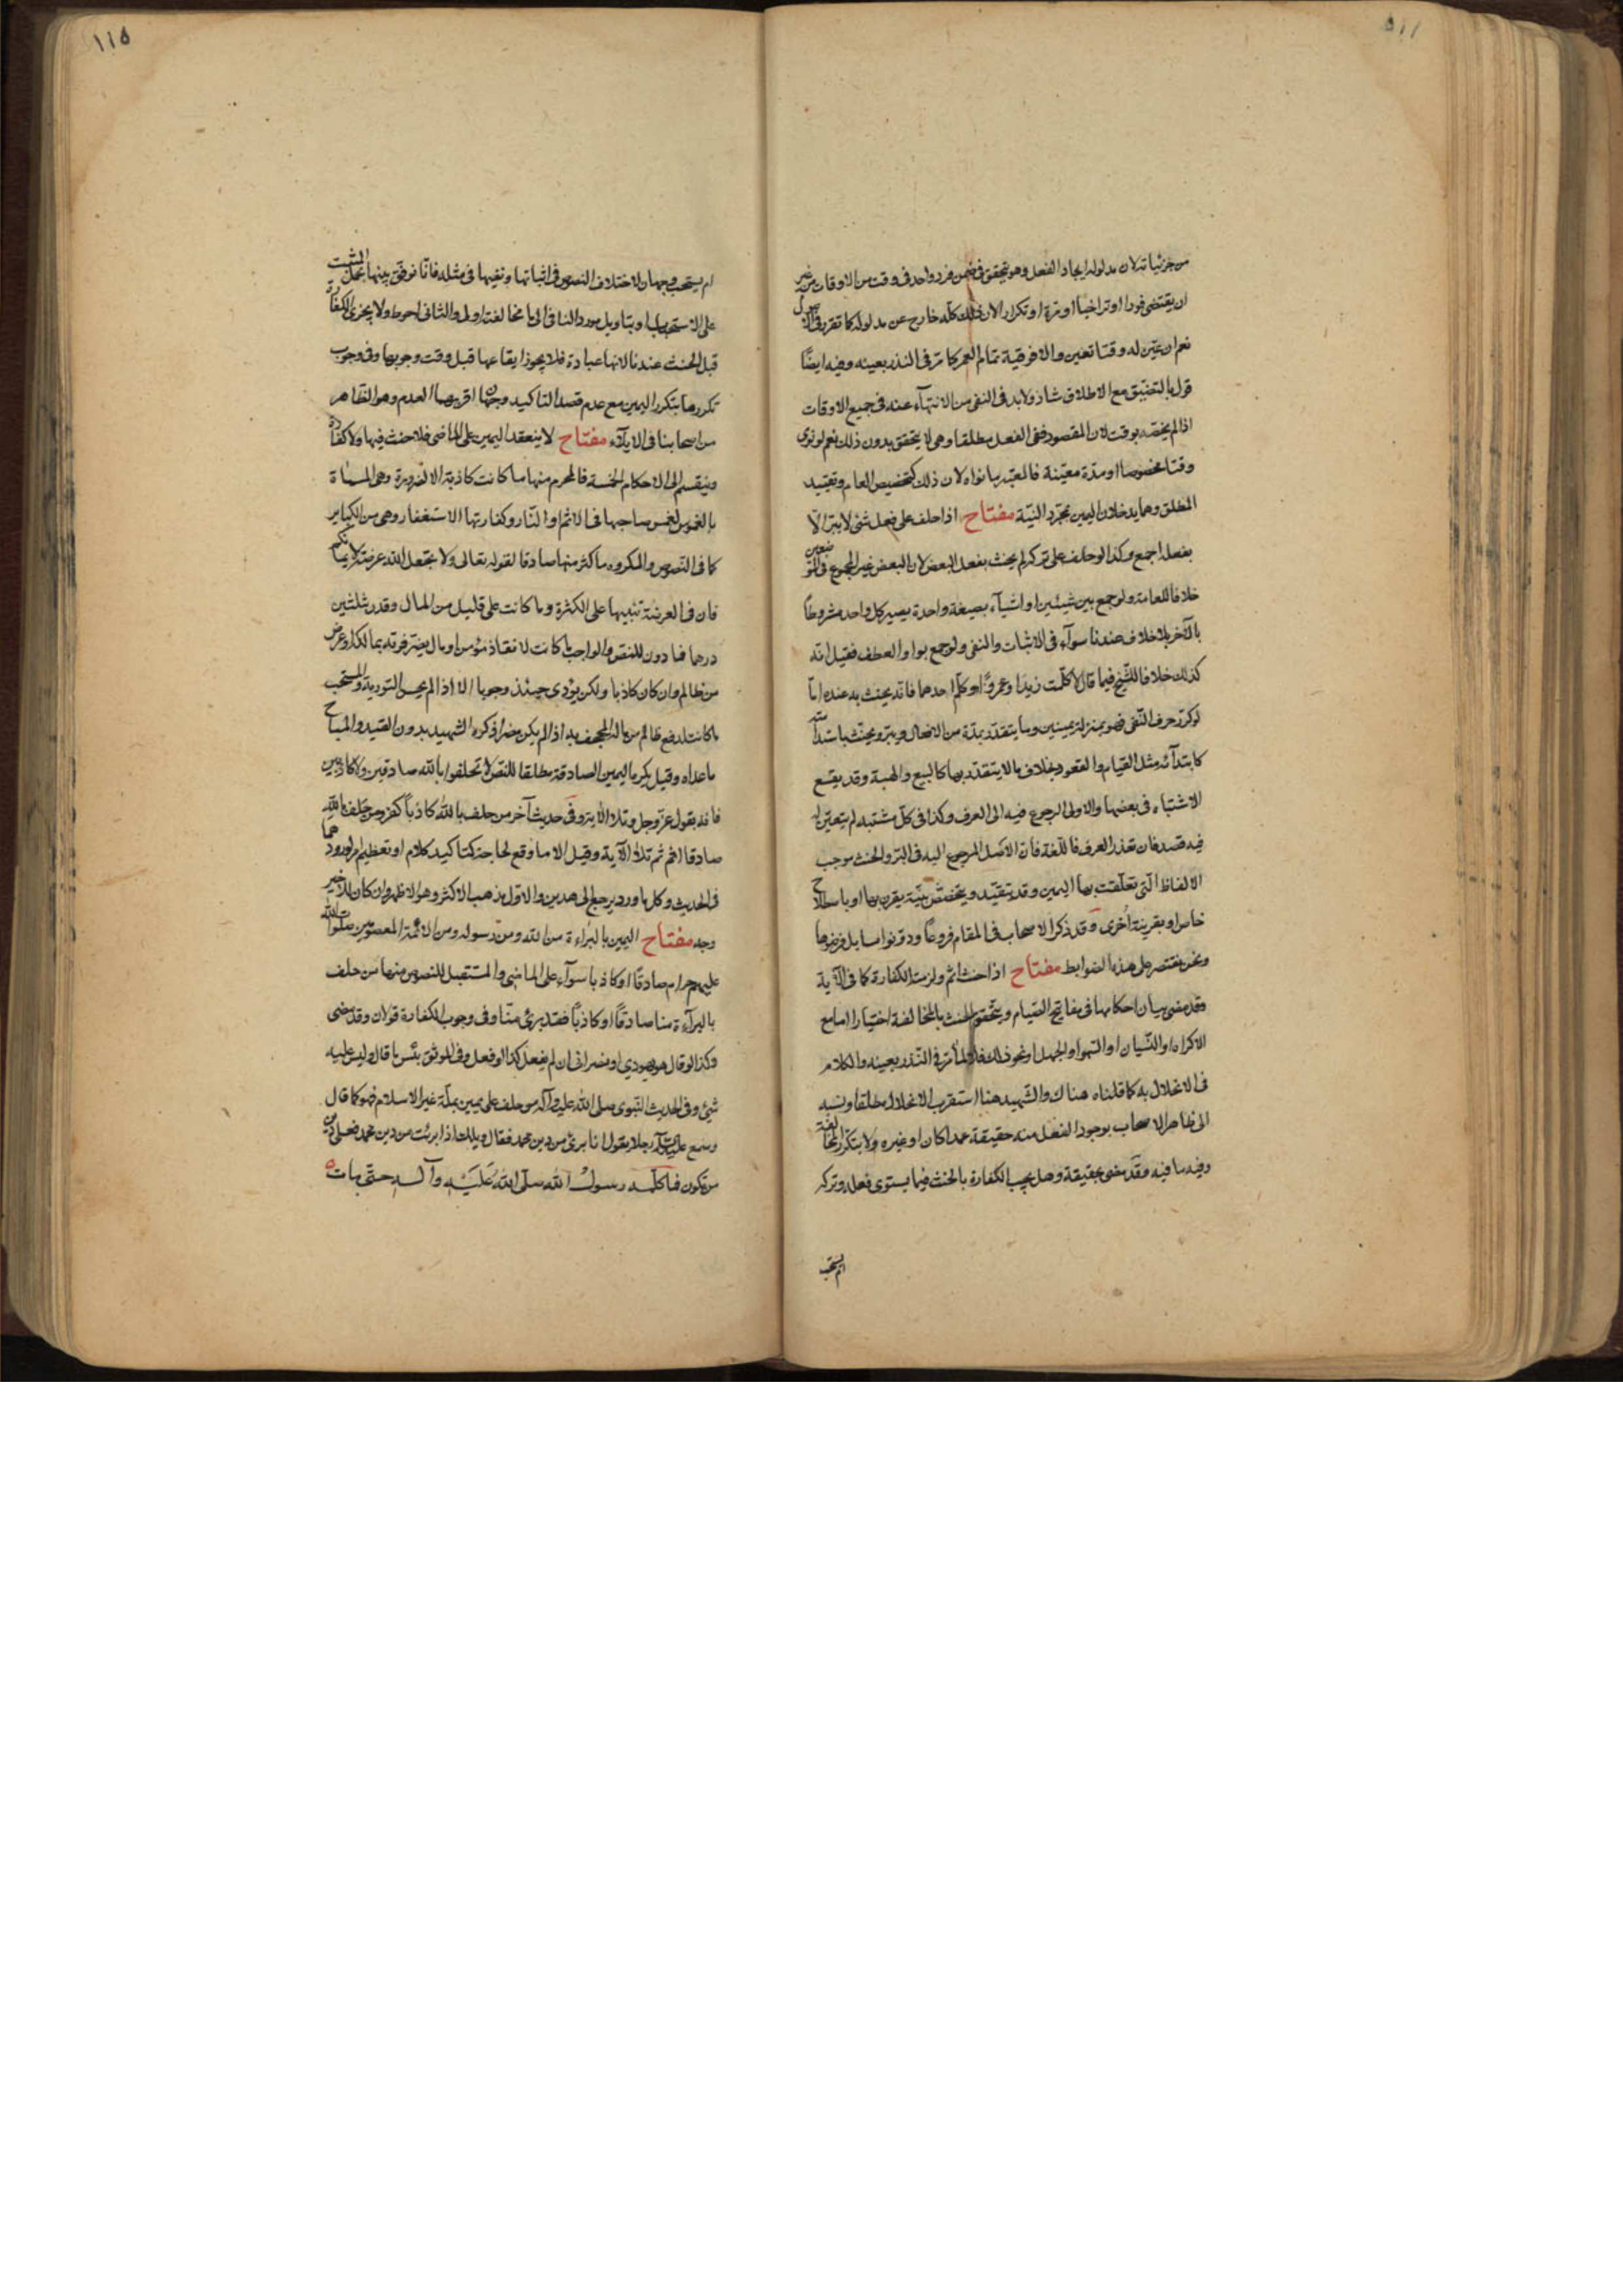 ١١٥
من جزئياته لان مدلوله ايجاد الفعل وهو يتحقق في ضمن فرد واحد في وقت من الاوقات من غير
ان يقتضى فورا او تراخيا او مرة او تكرارا لان ذلك كله خارج عن مدلوله كما تقرر في الاصول
نعم ان عين له وقتا تعين والا فوقته تمام العمر كما مر في النذر بعينه وفيه ايضًا
قول بالتضيّق مع الاطلاق شاذ ولابد في النفى من الانتهاء عنه في جميع الاوقات
اذا لم يخصّه بوقت لان المقصود نفى الفعل مطلقا وهى لا يتحقق بدون ذلك نعم لو نوى
وقتا مخصوصا او مدّة معيّنة فالمعتبر ما نواه لان ذلك كتخصيص العام وتقييد
المطلق وهما يدخلان اليمين بمجرّد النيّة مفتاح اذا حلف على فعل شئ لا يبرّ الّا
بفعله اجمع وكذا لو حلف على تركه لم يحنث بفعل البعض لان البعض غير المجموع في الموضعين
خلافا للعامة ولو جمع بين شيئين او اشيآء بصيغة واحدة يصير كل واحد مشروطاً
بالآخر بلا خلاف عندنا سوآء في الاثبات والنفى ولو جمع بواو العطف فقيل انّه
كذلك خلافا للشّيخ فيما قال لا كلّمت زيدا وعمروًا وكلّم احدهما فانه يحنث به عنده امّا
لو كرّر حرف النّفى فهو بمنزلة يمينين وما يتقدّر بمدّة من الافعال ويبرّ ويحنث باستدامته
كابتدآئه مثل القيام والقعود بخلاف ما لا يتقدّر بها كالبيع والهبة وقد يقع
الاشتباه في بعضها والاولى الرجوع فيه الى العرف وكذا في كلّ مشتبه لم يتعيّن له
فيه قصد فان تعذر العرف فاللّغة فان الاصل المرجوع اليه في البرّ والحنث موجب
الالفاظ الّتى تعلّقت بها اليمين وقد يتقيّد ويتخصّص بنيّة يقرن بها او باصطلاح
خاص او بقرينة اُخرى وقد ذكر الاصحاب في المقام فروعًا ودوّنوا مسايل وفرضوها
ونحن نقتصر على هذه الضوابط مفتاح اذا حنث اثم ولزمته الكفارة كما في الآية
وقد مضى بيان احكامها في مفاتيح الصّيام ويتحقق الحنث بالمخالفة اختيارا اما مع
الاكراه او النّسيان او السّهو او الجهل او نحو ذلك فلا لما مر في النّذر بعينه والكلام
في الانحلال به كما قلناه هناك والشّهيد هنا استقرب الانحلال مطلقا ونسبه
الى ظاهر الاصحاب بوجود الفعل منه حقيقة عمدا كان او غيره ولا يتكرّر المخالفة
وفيه ما فيه وقد مضى تحقيقه وهل يجب الكفارة بالحنث فيما يستوى فعله وتركه
ام يستحب
١١٥
ام يستحب وجهان لاختلاف النصوص في اثباتها ونفيها في مثله فانّا نوفّق بينها بحمل المثبت
على الاستحباب او بتاويل مورد النافى الى ما مخالفته اولى والثانى احوط ولا يجزى الكفارة
قبل الحنث عندنا لانها عبادة فلا يجوز ايقاعها قبل وقت وجوبها وفى وجوب
تكررها بتكرر اليمين مع عدم قصد التاكيد وجهان اقربهما العدم وهو الظاهر
من اصحابنا في الايلآء مفتاح لا ينعقد اليمين على الماضى فلا حنث فيها ولا كفارة
وينقسم الى الاحكام الخمسة فالمحرم منها ما كانت كاذبة الا لضرورة وهى المسماة
بالغموس لغمس صاحبها في الاثم او النّار وكفارتها الاستغفار وهى من الكباير
كما في النّصوص والمكروه ما كثر منها صادقا لقوله تعالى ولا تجعل الله عرضة لايمانكم
فان في العرضة تنبيها على الكثرة وما كانت على قليل من المال وقدر ثلثين
درهما فما دون للنص والواجب ما كانت لانقاذ مؤمن او مال يضرّ فوته بمالكه او عرض
من ظالم وان كان كاذبا ولكن يؤدى حينئذ وجوبا الا اذا لم يحسن التورية والمستحب
ما كانت لدفع ظالم من ماله المجحف به اذا لم يكن مضرا ذكره الشهيد بدون القيد والمباح
ما عداه وقيل يكره اليمين الصادقة مطلقا للنص لا تحلفوا بالله صادقين ولا كاذبين
فانه يقول عزّ وجل وتلا الآية وفي حديث آخر من حلف بالله كاذباً كفر ومن حلف بالله
صادقا اثم ثم تلا الآية وقيل الا ما وقع لحاجة كتاكيد كلام او تعظيم امر لورودهما
في الحديث وكل ما ورد يرجع الى هدين والاول مذهب الاكثر وهو الاظهر وان كان للاخير
وجه مفتاح اليمين بالبراءة من الله ومن رسوله ومن الائمة المعصومين صلوات الله
عليهم حرام صادقًا او كاذبا سوآء على الماضى والمستقبل للنصوص منها من حلف
بالبرآءة منا صادقًا او كاذباً فقد برئ منّا وفى وجوب الكفارة قولان وقد مضى
وكذا لو قال هو يهودي او نصرانى ان لم يفعل كذا لو فعل وفى الموثق بئس ما قال وليس عليه
شئ وفى الحديث النّبوى صلى الله عليه وآله من حلف على يمين بملّة غير الاسلام فهو كما قال
وسمع عليه السلام رجلا يقول انا برئ من دين محمد فقال ويلك اذا برئت من دين محمد فعلى دين
من تكون فما كلّمه رسول الله صلّى الله عَلَيْهِ وآله حتّى مات